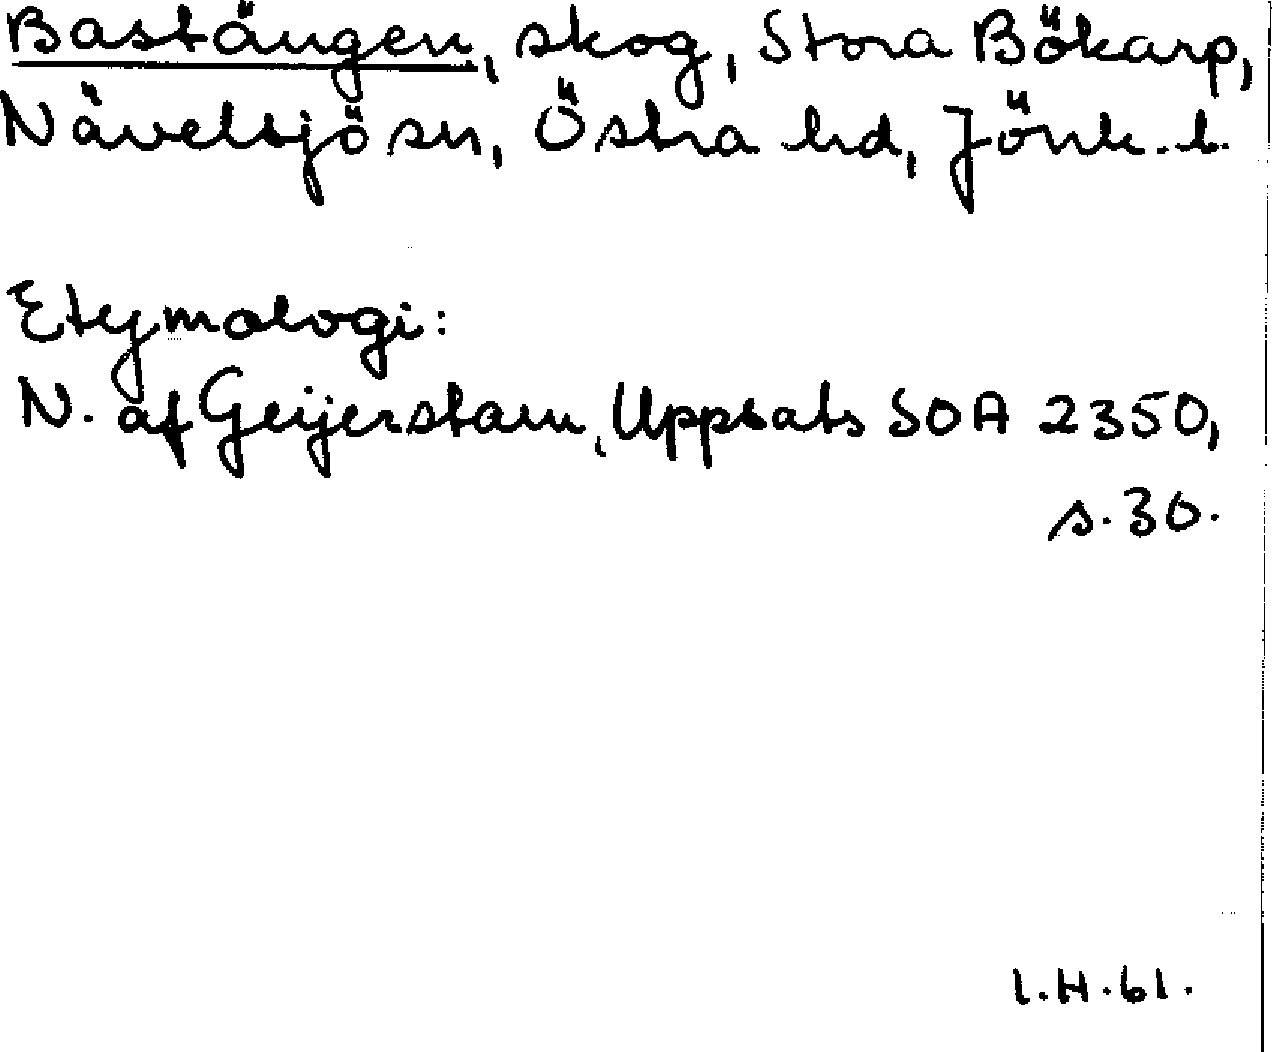 Bastängen, skog, Stora Bökarp,
Nävelsjö sn, Östra hd, Jönk. l.
Etymologi:
N. af Geijerstam, Uppsats SOA 2350,
s. 30.
I.H.61.